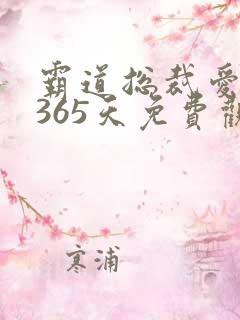 霸道总裁爱
365天免費觀
寒浦